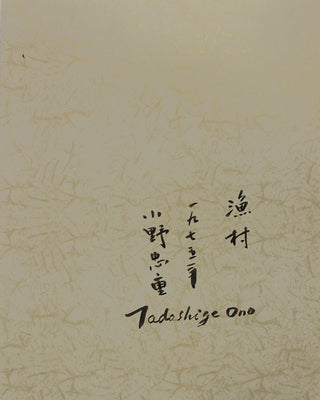 漁村
一九七五年
小野忠重
Tadashige Ono